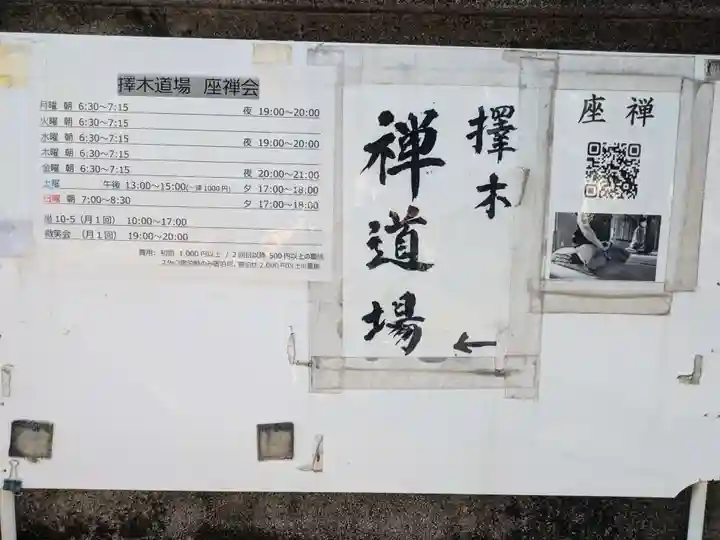 擇木道場 座禅会
月曜 朝 6:30～7:15 夜 19:00～20:00
火曜 朝 6:30～7:15
水曜 朝 6:30～7:15 夜 19:00～20:00
木曜 朝 6:30～7:15
金曜 朝 6:30～7:15 夜 20:00～21:00
土曜 午後 13:00～15:00(一律1000円) 夕 17:00～18:00
日曜 朝 7:00～8:30 夕 17:00～18:00
坐 10-5（月1回） 10:00～17:00
微笑会 （月1回） 19:00～20:00
費用：初回 1,000円以上 / 2回目以降 500円以上の喜捨
擇木
禅道場
←
座禅